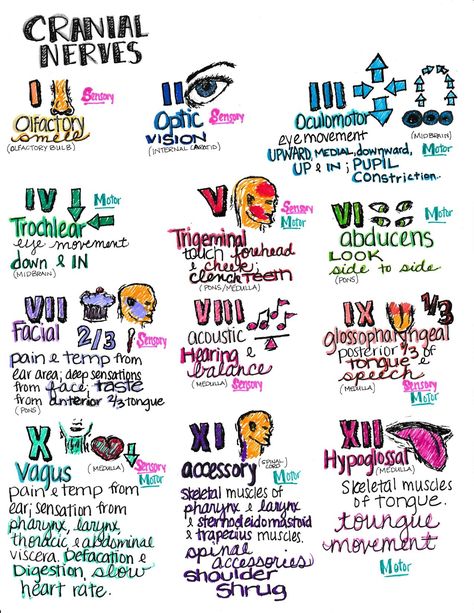 CRANIAL
NERVES
I
Sensory
Olfactory
smell
(OLFACTORY BULB)
II
Optic
Sensory
VISION
(INTERNAL CAROTID)
III
Oculomotor
eye movement
(MIDBRAIN)
UPWARD, MEDIAL, downward,
Motor
UP & IN ; PUPIL
Constriction.
IV
Motor
Trochlear
eye movement
down & IN
(MIDBRAIN)
V
Sensory
Motor
Trigeminal
touch forehead
& cheek;
clench Teeth
(PONS/MEDULLA)
VI
Motor
abducens
LOOK
side to side
(PONS)
VII
Facial
2/3
Sensory
Motor
pain & temp from
ear area; deep sensations
from face, taste
from anterior 2/3 tongue
(PONS)
VIII
acoustic
Hearing &
balance
(MEDULLA) Sensory
IX
1/3
glossopharyngeal
posterior 1/3 of
tongue &
speech
(MEDULLA) Sensory
Motor
X
(MEDULLA)
Sensory
Motor
Vagus
pain & temp from
ear; sensation from
pharynx, larynx,
thoracic & abdominal
viscera. Defacation &
Digestion, slow
heart rate.
XI
(SPINAL
CORD)
accessory
Motor
Skeletal muscles of
pharynx & larynx
& sternocleidomastoid
& trapezius muscles.
spinal
accessories
shoulder
shrug
XII
Hypoglossal
(MEDULLA)
Skeletal muscles
of tongue.
toungue
movement
Motor